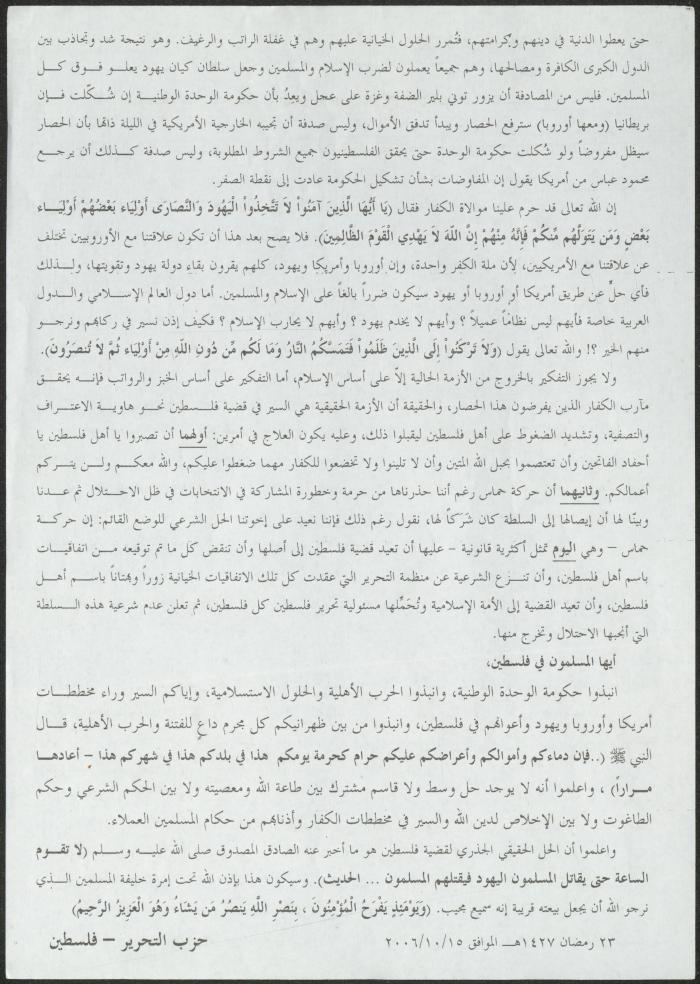 حتى يعطوا الدنية في دينهم وكرامتهم، فتُمرر الحلول الخيانية عليهم وهم في غفلة الراتب والرغيف. وهو نتيجة شد وتجاذب بين
الدول الكبرى الكافرة ومصالحها، وهم جميعاً يعملون لضرب الإسلام والمسلمين وجعل سلطان كيان يهود يعلو فوق كل
المسلمين. فليس من المصادفة أن يزور توني بلير الضفة وغزة على عجل ويعِدُ بأن حكومة الوحدة الوطنية إن شُكّلت فإن
بريطانيا (ومعها أوروبا) سترفع الحصار ويبدأ تدفق الأموال، وليس صدفة أن تجيبه الخارجية الأمريكية في الليلة ذاتها بأن الحصار
سيظل مفروضاً ولو شُكلت حكومة الوحدة حتى يحقق الفلسطينيون جميع الشروط المطلوبة، وليس صدفة كذلك أن يرجع
محمود عباس من أمريكا يقول إن المفاوضات بشأن تشكيل الحكومة عادت إلى نقطة الصفر.
إن الله تعالى قد حرم علينا موالاة الكفار فقال (يَا أَيُّهَا الَّذِينَ آمَنُواْ لاَ تَتَّخِذُواْ الْيَهُودَ وَالنَّصَارَى أَوْلِيَاء بَعْضُهُمْ أَوْلِيَاء
بَعْضٍ وَمَن يَتَوَلَّهُم مِّنكُمْ فَإِنَّهُ مِنْهُمْ إِنَّ اللّهَ لاَ يَهْدِي الْقَوْمَ الظَّالِمِينَ). فلا يصح بعد هذا أن تكون علاقتنا مع الأوروبيين تختلف
عن علاقتنا مع الأمريكيين، لأن ملة الكفر واحدة، وإن أوروبا وأمريكا ويهود، كلهم يقرون بقاء دولة يهود وتقويتها، ولذلك
فأي حلٍّ عن طريق أمريكا أو أوروبا أو يهود سيكون ضرراً بالغاً على الإسلام والمسلمين. أما دول العالم الإسلامي والدول
العربية خاصة فأيهم ليس نظاماً عميلاً ؟ وأيهم لا يخدم يهود ؟ وأيهم لا يحارب الإسلام ؟ فكيف إذن نسير في ركابهم ونرجو
منهم الخير ؟! والله تعالى يقول (وَلاَ تَرْكَنُواْ إِلَى الَّذِينَ ظَلَمُواْ فَتَمَسَّكُمُ النَّارُ وَمَا لَكُم مِّن دُونِ اللّهِ مِنْ أَوْلِيَاء ثُمَّ لاَ تُنصَرُونَ).
ولا يجوز التفكير بالخروج من الأزمة الحالية إلاّ على أساس الإسلام، أما التفكير على أساس الخبز والرواتب فإنه يحقق
مآرب الكفار الذين يفرضون هذا الحصار، والحقيقة أن الأزمة الحقيقية هي السير في قضية فلسطين نحو هاوية الاعتراف
والتصفية، وتشديد الضغوط على أهل فلسطين ليقبلوا ذلك، وعليه يكون العلاج في أمرين: أولهما أن تصبروا يا أهل فلسطين يا
أحفاد الفاتحين وأن تعتصموا بحبل الله المتين وأن لا تلينوا ولا تخضعوا للكفار مهما ضغطوا عليكم، والله معكم ولن يتركم
أعمالكم. وثانيهما أن حركة حماس رغم أننا حذرناها من حرمة وخطورة المشاركة في الانتخابات في ظل الاحتلال ثم عدنا
وبينّا لها أن إيصالها إلى السلطة كان شَرَكاً لها، نقول رغم ذلك فإننا نعيد على إخوتنا الحل الشرعي للوضع القائم: إن حركة
حماس – وهي اليوم تمثل أكثرية قانونية – عليها أن تعيد قضية فلسطين إلى أصلها وأن تنقض كل ما تم توقيعه من اتفاقيات
باسم أهل فلسطين، وأن تنزع الشرعية عن منظمة التحرير التي عقدت كل تلك الاتفاقيات الخيانية زوراً وبهتاناً باسم أهل
فلسطين، وأن تعيد القضية إلى الأمة الإسلامية وتُحَمِّلها مسئولية تحرير فلسطين كل فلسطين، ثم تعلن عدم شرعية هذه السلطة
التي أنجبها الاحتلال وتخرج منها.
أيها المسلمون في فلسطين،
انبذوا حكومة الوحدة الوطنية، وانبذوا الحرب الأهلية والحلول الاستسلامية، وإياكم السير وراء مخططات
أمريكا وأوروبا ويهود وأعوانهم في فلسطين، وانبذوا من بين ظهرانيكم كل مجرم داعٍ للفتنة والحرب الأهلية، قال
النبي ﷺ (..فإن دماءكم وأموالكم وأعراضكم عليكم حرام كحرمة يومكم هذا في بلدكم هذا في شهركم هذا – أعادها
مراراً) ، واعلموا أنه لا يوجد حل وسط ولا قاسم مشترك بين طاعة الله ومعصيته ولا بين الحكم الشرعي وحكم
الطاغوت ولا بين الإخلاص لدين الله والسير في مخططات الكفار وأذنابهم من حكام المسلمين العملاء.
واعلموا أن الحل الحقيقي الجذري لقضية فلسطين هو ما أخبر عنه الصادق المصدوق صلى الله عليه وسلم (لا تقوم
الساعة حتى يقاتل المسلمون اليهود فيقتلهم المسلمون ... الحديث). وسيكون هذا بإذن الله تحت إمرة خليفة المسلمين الذي
نرجو الله أن يجعل بيعته قريبة إنه سميع مجيب. (وَيَوْمَئِذٍ يَفْرَحُ الْمُؤْمِنُونَ ، بِنَصْرِ اللَّهِ يَنصُرُ مَن يَشَاءُ وَهُوَ الْعَزِيزُ الرَّحِيمُ)
٢٣ رمضان ١٤٢٧هـ الموافق ٢٠٠٦/١٠/١٥ حزب التحرير – فلسطين